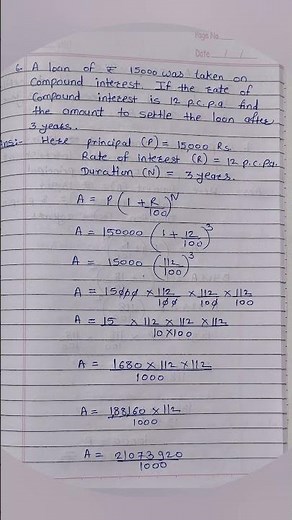 Page No.
Date / /
6. A loan of ₹ 15000 was taken on
compound interest. If the rate of
compound interest is 12 p.c.p.a. find
the amount to settle the loan after
3 years.
ns:- Here principal (P) = 15000 Rs
Rate of interest (R) = 12 p.c.pa.
Duration (N) = 3 years.
A = P (1 + R/100)^N
A = 150000 (1 + 12/100)^3
A = 15000 (112/100)^3
A = 15000 × 112/100 × 112/100 × 112/100
A = 15 × 112 × 112 × 112 / 10 × 100
A = 1680 × 112 × 112 / 1000
A = 188160 × 112 / 1000
A = 21073920 / 1000